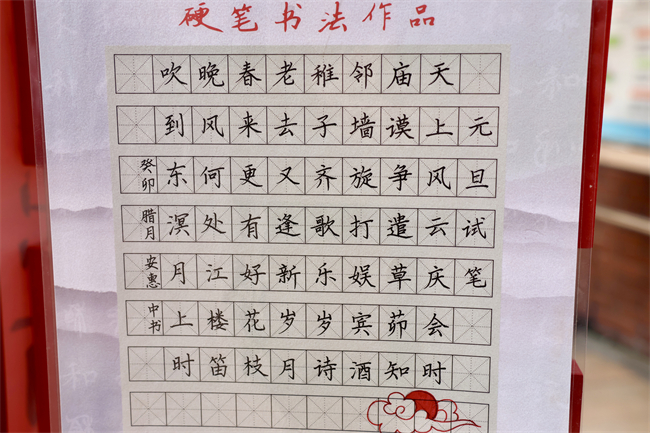 硬笔书法作品
元旦试笔
天上风云庆会时
庙谟争遣草茆知
邻墙旋打娱宾酒
稚子齐歌乐岁诗
老去又逢新岁月
春来更有好花枝
晚风何处江楼笛
吹到东溟月上时
癸卯腊月安惠中书